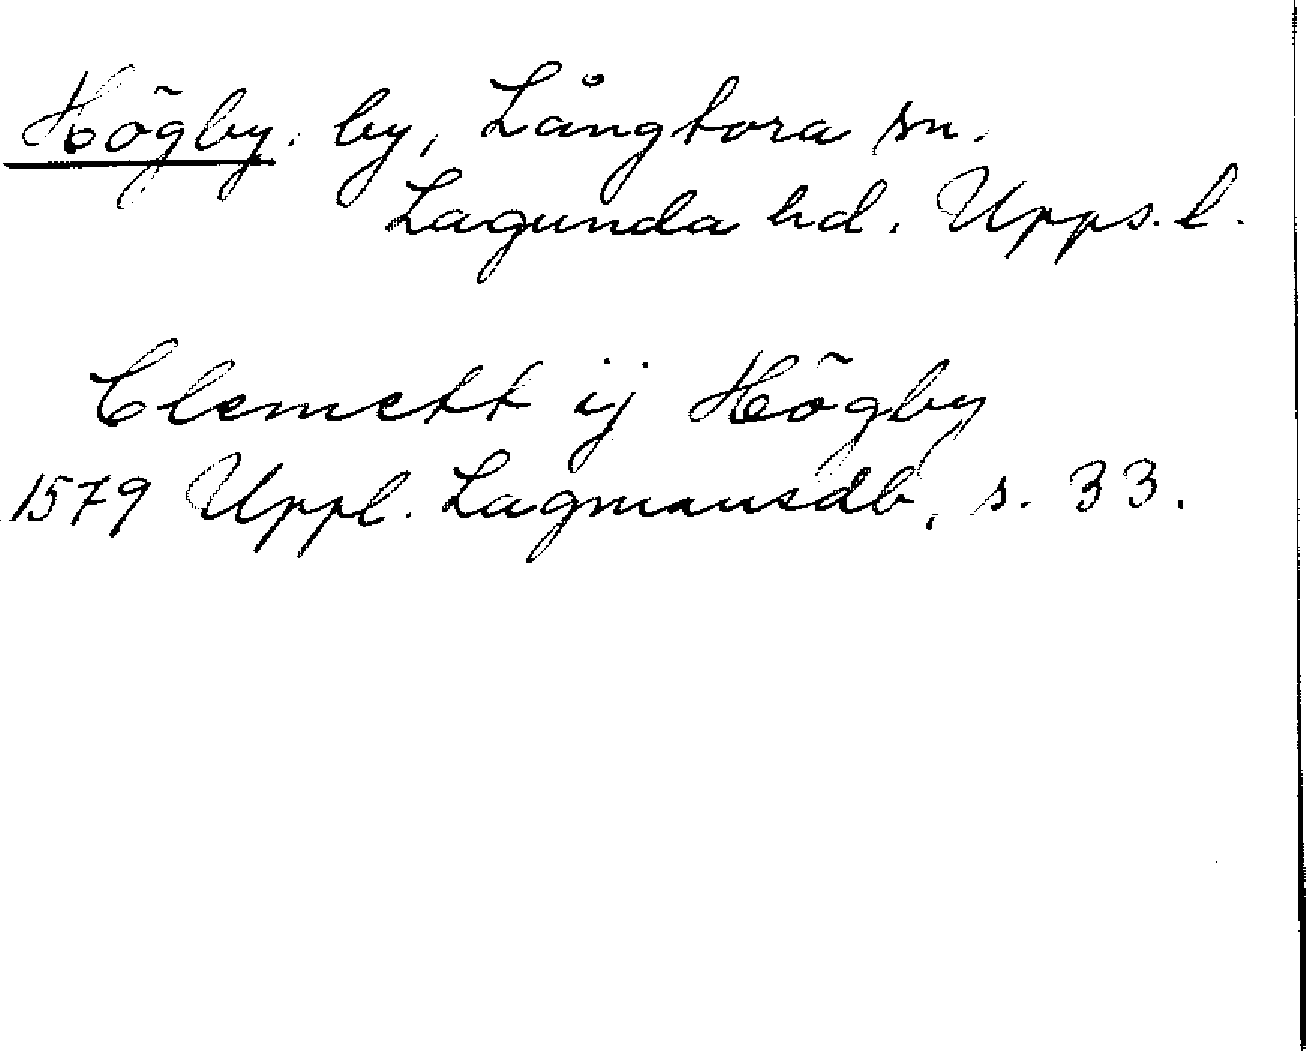 Högby, by, Långtora sn.
Lagunda hd. Upps. l.
Clemett ij Högby
1579 Uppl. Lagmansdb, s. 33.